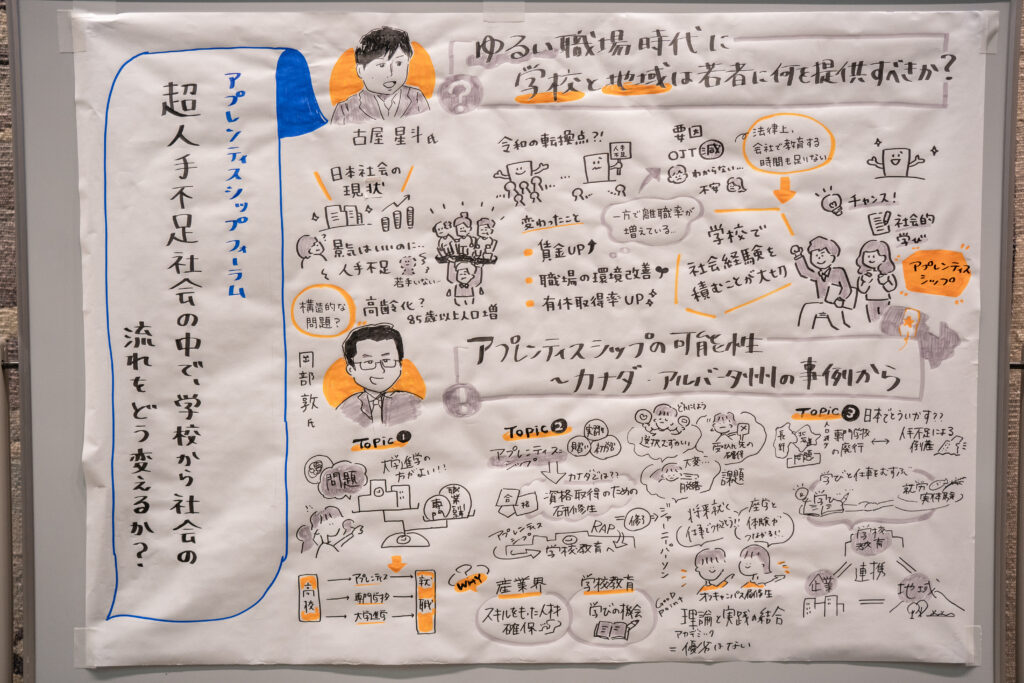 アプレンティスシップフォーラム
超人手不足社会の中で、学校から社会の
流れをどう変えるか?
ゆるい職場時代に
学校と地域は若者に何を提供すべきか?
?
古屋 星斗氏
日本社会の
現状
景気はいいのに…
人手不足
若者いない…
構造的な
問題?
高齢化?
85歳以上人口増
令和の転換点?!
人手
不足
変わったこと
賃金UP↑
職場の環境改善
有休取得率UP
要因
OJT 減
わからない…
不安
一方で離職率が
増えている…
法律上、
会社で教育する
時間も足りない…
学校で
社会経験を
積むことが大切
チャンス!
社会的
学び
アプレンティス
シップ
岡部 敦氏
!
アプレンティスシップの可能性
~カナダ・アルバータ州の事例から
Topic 1
問題
大学進学の
方がよい!!
高校
アプレンティス
専門学校
大学進学
就職
Topic 2
アプレンティス
シップ
カナダでは??
合格
資格取得のための
研修生
アプレンティス
シップ
RAP
学校教育へ
ジャーニーパーソン
WHY
産業界
スキルをもった人材
確保
学校教育
学びの機会
どれにしよう
選択はむずかしい
受け入れ先の
確保
大変…
課題
将来就く
仕事につながる!!
座学と
体験が
つながる!!
オフキャンパス履修生
Good
Point
理論と実践の結合
アカデミック
=優劣はない
Topic 3
日本でどういかす??
専門学校
の発行
人手不足による
倒産
学びと仕事をむすぶ
学び
就労
実体験
学校
教育
連携
企業
地域